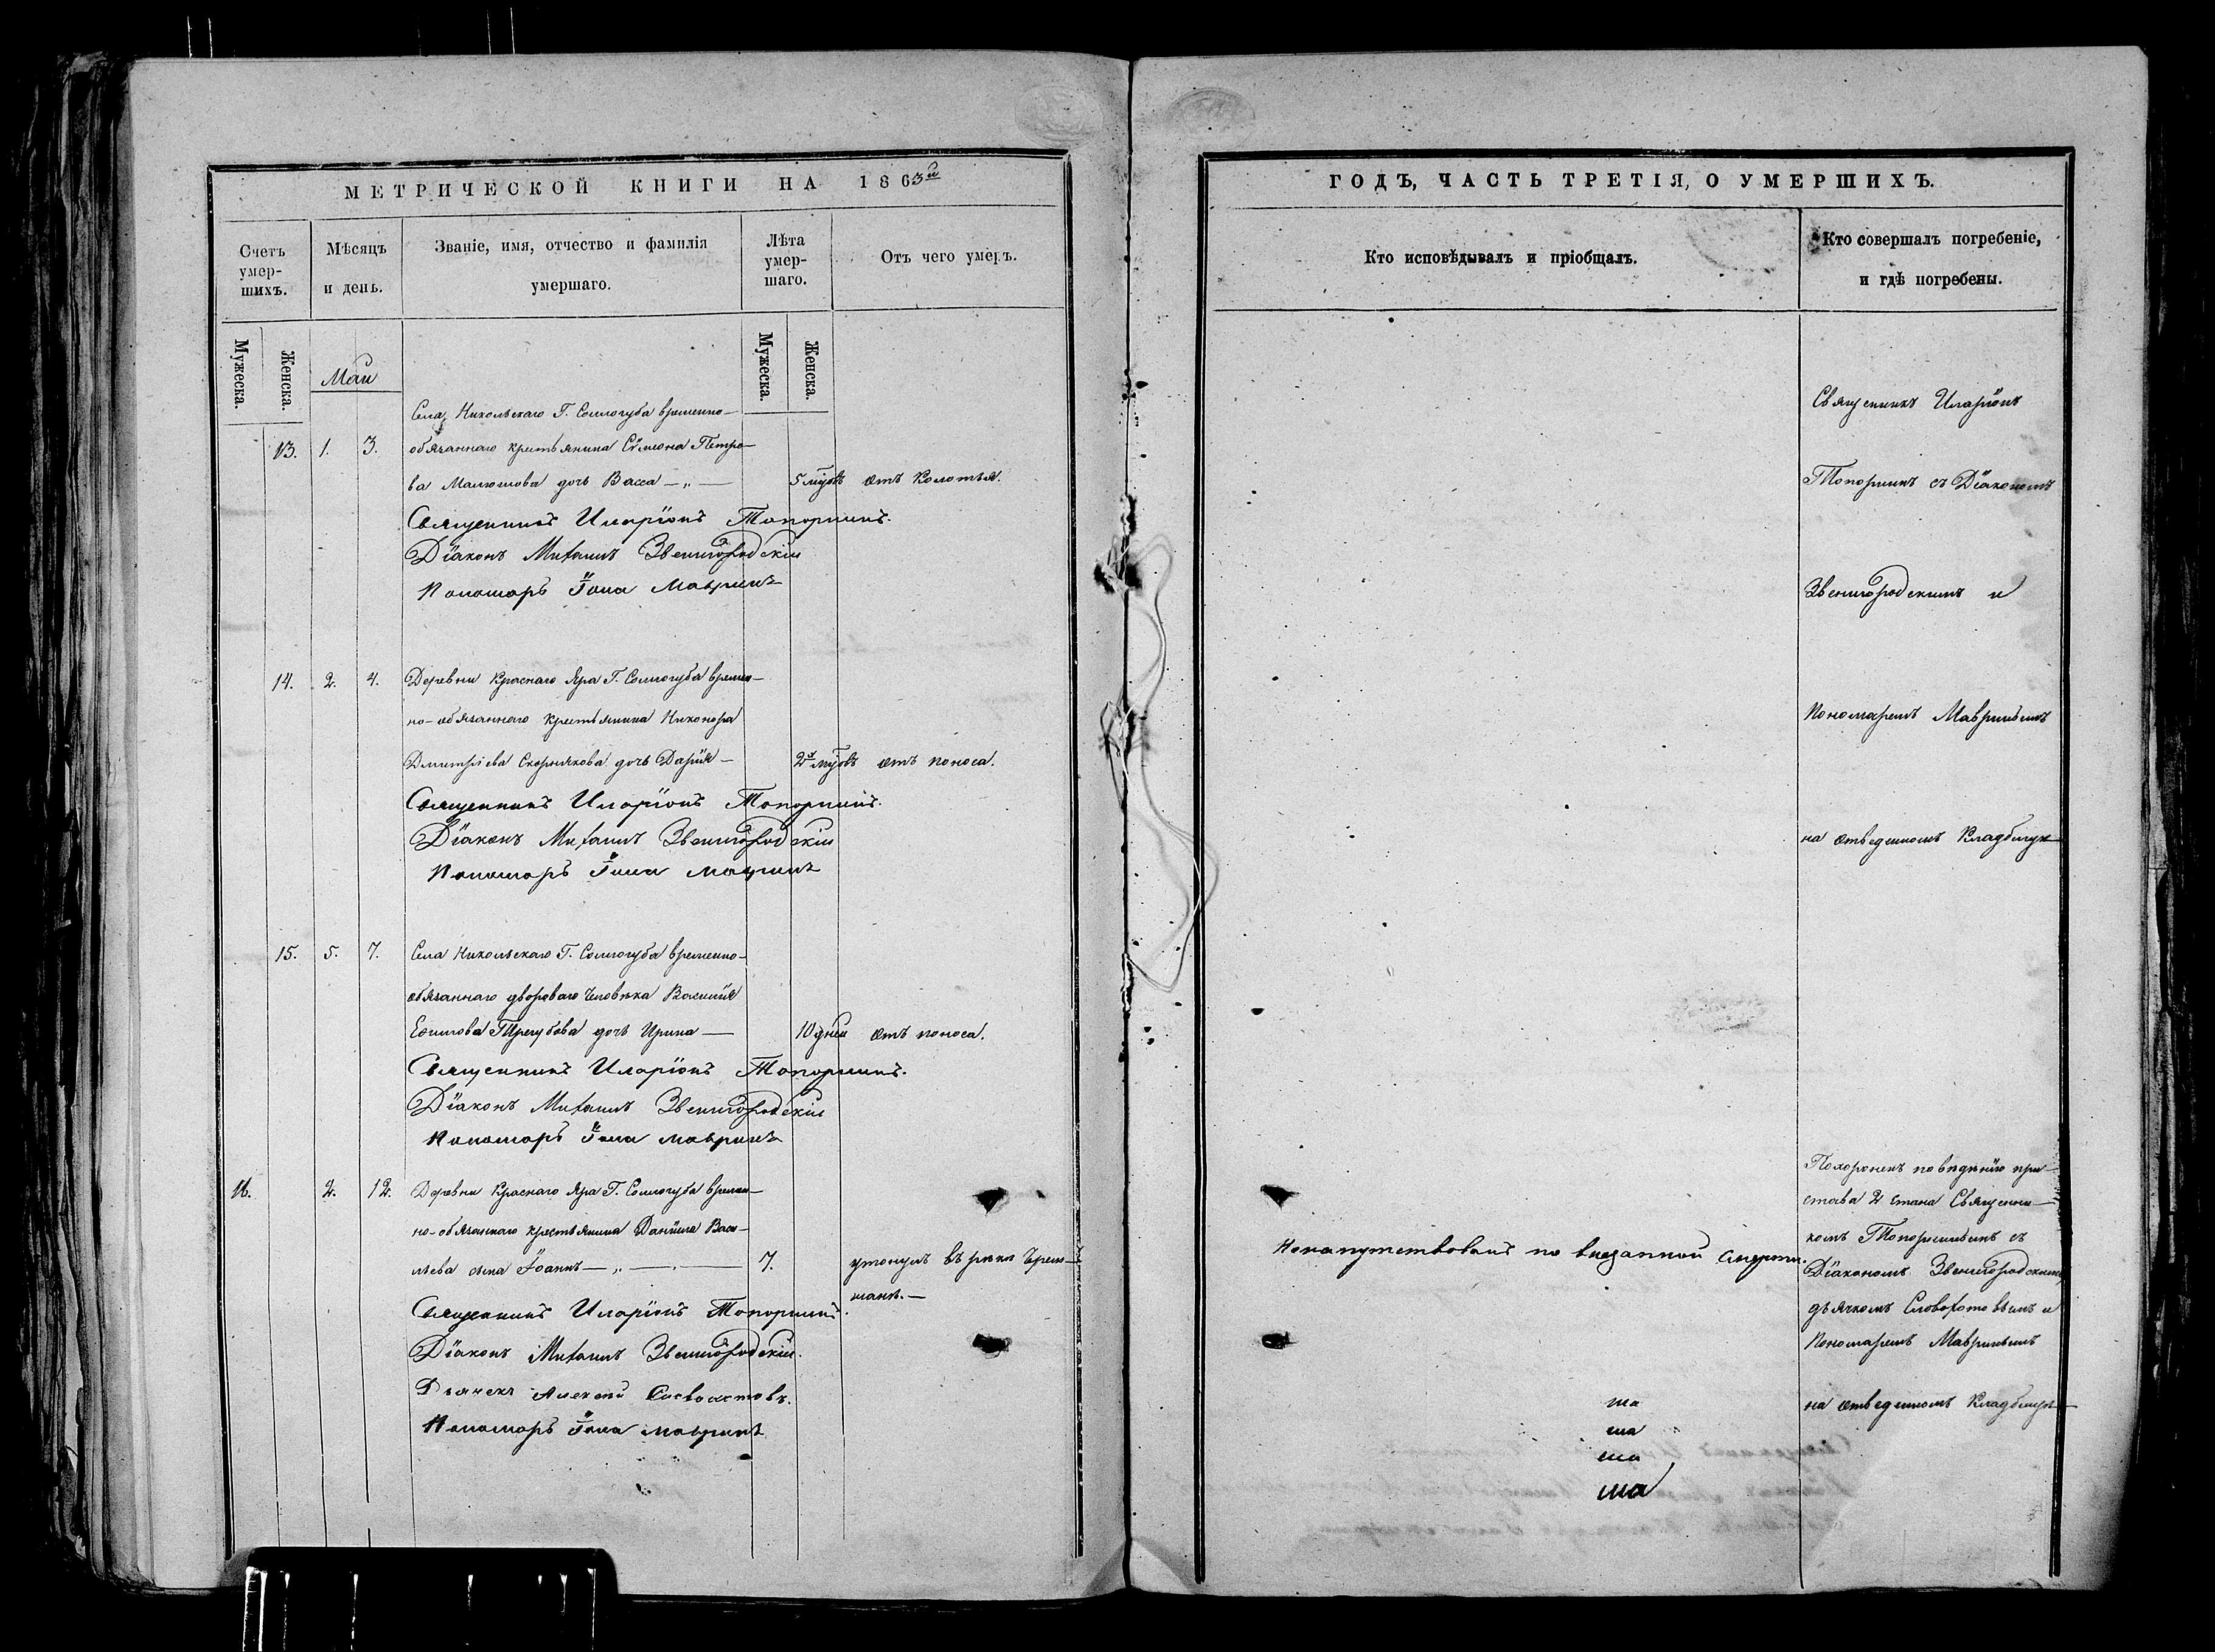 МЕТРИЧЕСКОЙ КНИГИ НА 1863й
Счетъ умер-
шихъ.
Мѣсяцъ
и день.
Званіе, имя, отчество и фамилія
умершаго.
Лѣта
умер-
шаго.
Отъ чего умеръ.
Мужеска.
Женска.
Мужеска.
Женска.
Маи
Села Никольскаго Г. Соллогуба временно-
13. 1. 3. обязаннаго крестьянина Сѵмеона Петро-
ва дочь Васса — „ — 5 мѣсяц. отъ Колотья.
Священникъ Иларіонъ Топорнинъ.
Діаконъ Михаилъ Звенигородскіи
Пономарь Іона Мавринъ
14. 2. 4. Деревни Краснаго Яра Г. Соллогуба времен-
но-обязаннаго крестьянина Никонора
Дмитріева Скорнякова дочь Дарія — отъ поноса.
Священникъ Иларіонъ Топорнинъ.
Діаконъ Михаилъ Звенигородскіи
Пономарь Іона Мавринъ
15. 5. 7. Села Никольскаго Г. Соллогуба временно-
обязаннаго двороваго человѣка Василія
Ефимова Трегубова дочь Ирина — 10 дней отъ поноса.
Священникъ Иларіонъ Топорнинъ.
Діаконъ Михаилъ Звенигородскіи
Пономарь Іона Мавринъ
16. 2. 12. Деревни Краснаго Яра Г. Соллогуба времен-
но-обязаннаго крестьянина Даніила Васи-
льева сынъ Іоаннъ — „ — 7. утонулъ въ рѣкѣ Черем-
шанѣ. —
Священникъ Иларіонъ Топорнинъ.
Діаконъ Михаилъ Звенигородскіи.
Дьячекъ Алексей
Пономарь Іона Мавринъ
ГОДЪ, ЧАСТЬ ТРЕТІЯ, О УМЕРШИХЪ.
Кто исповѣдывалъ и пріобщалъ.
Кто совершалъ погребеніе,
и гдѣ погребены.
Священникъ Иларіонъ
Топорнинъ съ Діакономъ
Звенигородскимъ и
Пономаремъ Мавринымъ
на отведенномъ Кладбищѣ
Ненапутствованъ по внезапной смерти.
Похороненъ по вѣденію при-
става 2 стана Священни-
комъ Топорнинымъ съ
Діакономъ Звенигородскимъ,
дьячкомъ и
Пономаремъ Мавринымъ
на отведенномъ Кладбищѣ